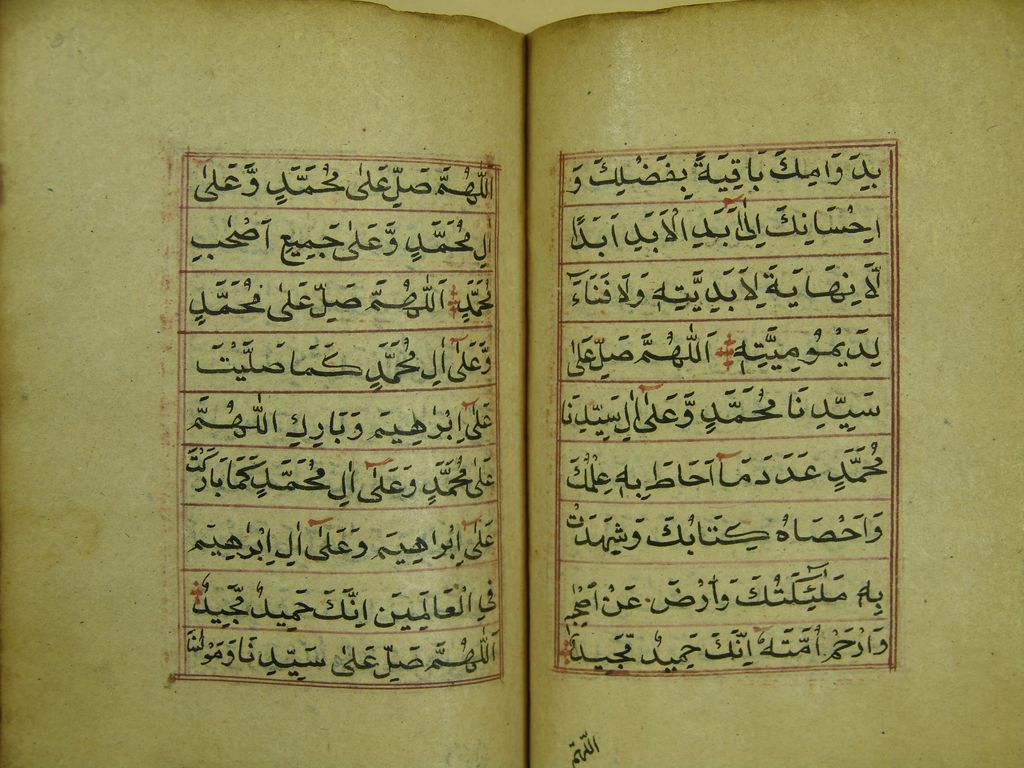 بِدَوَامِكَ بَاقِيَةً بِفَضْلِكَ وَ
اِحْسَانِكَ اِلٰى اَبَدِ الْاَبَدِ اَبَدًا
لَّا نِهَايَةَ لِاَبَدِيَّتِهٖ وَلَا فَنَآءَ
لِدَيْمُوْمِيَّتِهٖ اَللّٰهُمَّ صَلِّ عَلٰى
سَيِّدِنَا مُحَمَّدٍ وَّعَلٰٓى اٰلِ سَيِّدِنَا
مُحَمَّدٍ عَدَدَ مَآ اَحَاطَ بِهٖ عِلْمُكَ
وَاَحْصَاهُ كِتَابُكَ وَشَهِدَتْ
بِهٖ مَلٰٓئِكَتُكَ وَارْضَ عَنْ اَصْحٰبِهٖ
وَارْحَمْ اُمَّتَهٗ اِنَّكَ حَمِيْدٌ مَّجِيْدٌ
اللّٰهُمَّ
اَللّٰهُمَّ صَلِّ عَلٰى مُحَمَّدٍ وَّعَلٰٓى
اٰلِ مُحَمَّدٍ وَّعَلٰى جَمِيْعِ اَصْحٰبِ
مُحَمَّدٍ اَللّٰهُمَّ صَلِّ عَلٰى مُحَمَّدٍ
وَّعَلٰٓى اٰلِ مُحَمَّدٍ كَمَا صَلَّيْتَ
عَلٰٓى اِبْرٰهِيْمَ وَبَارِكِ اللّٰهُمَّ
عَلٰى مُحَمَّدٍ وَعَلٰٓى اٰلِ مُحَمَّدٍ كَمَا بَارَكْتَ
عَلٰٓى اِبْرَاهِيْمَ وَعَلٰٓى اٰلِ اِبْرٰهِيْمَ
فِى الْعَالَمِيْنَ اِنَّكَ حَمِيْدٌ مَّجِيْدٌ
اَللّٰهُمَّ صَلِّ عَلٰى سَيِّدِنَا وَمَوْلٰنَا